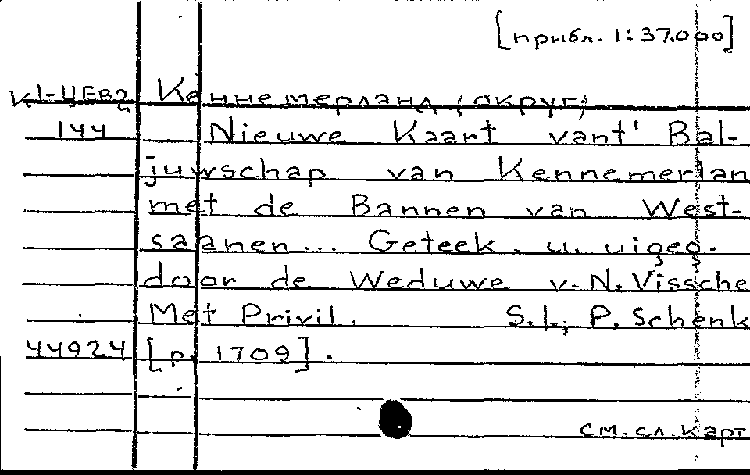 [прибл. 1:37.000]
К1-ЦЕВ2 Кеннемерланд (округ)
144 Nieuwe Kaart vant' Bal-
juwschap van Kennemerlan
met de Bannen van West-
saanen... Geteek. u. uigeg.
door de Weduwe v. N. Vissche
Met Privil. S.l., P. Schenk
44924 [p. 1709].
см. сл. карт